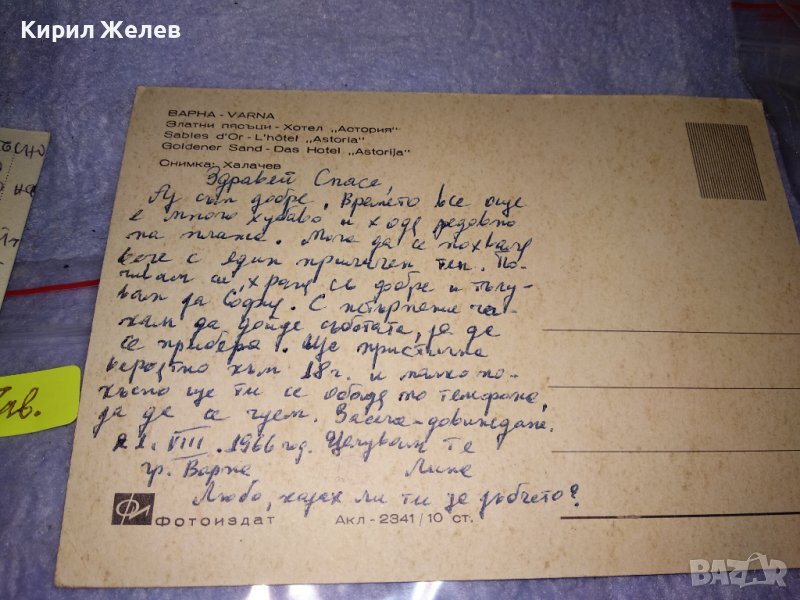 Кирил Желев
ВАРНА - VARNA
Златни пясъци - Хотел „Астория"
Sables d'Or - L'hôtel „Astoria"
Goldener Sand - Das Hotel „Astorija"
Снимка: Халачев
Здравей Спасе,
Аз съм добре. Времето все още
е много хубаво и ходя редовно
на плажа. Мога да се похваля
вече с един приличен тен. По-
чивам си, храня се добре и тъгу-
вам за София. С нетърпение ча-
кам да дойде съботата, за да
се прибера. Ще пристигна
вероятно към 18 ч. и малко по-
късно ще ти се обадя по телефона,
за да се чуем. Засега - довиждане.
21. VIII. 1966 год. Целувам те
гр. Варна Лина
Любо, казах ли ти за зъбчето?
Фотоиздат Акл - 2341/10 ст.
ав.
BAZAR